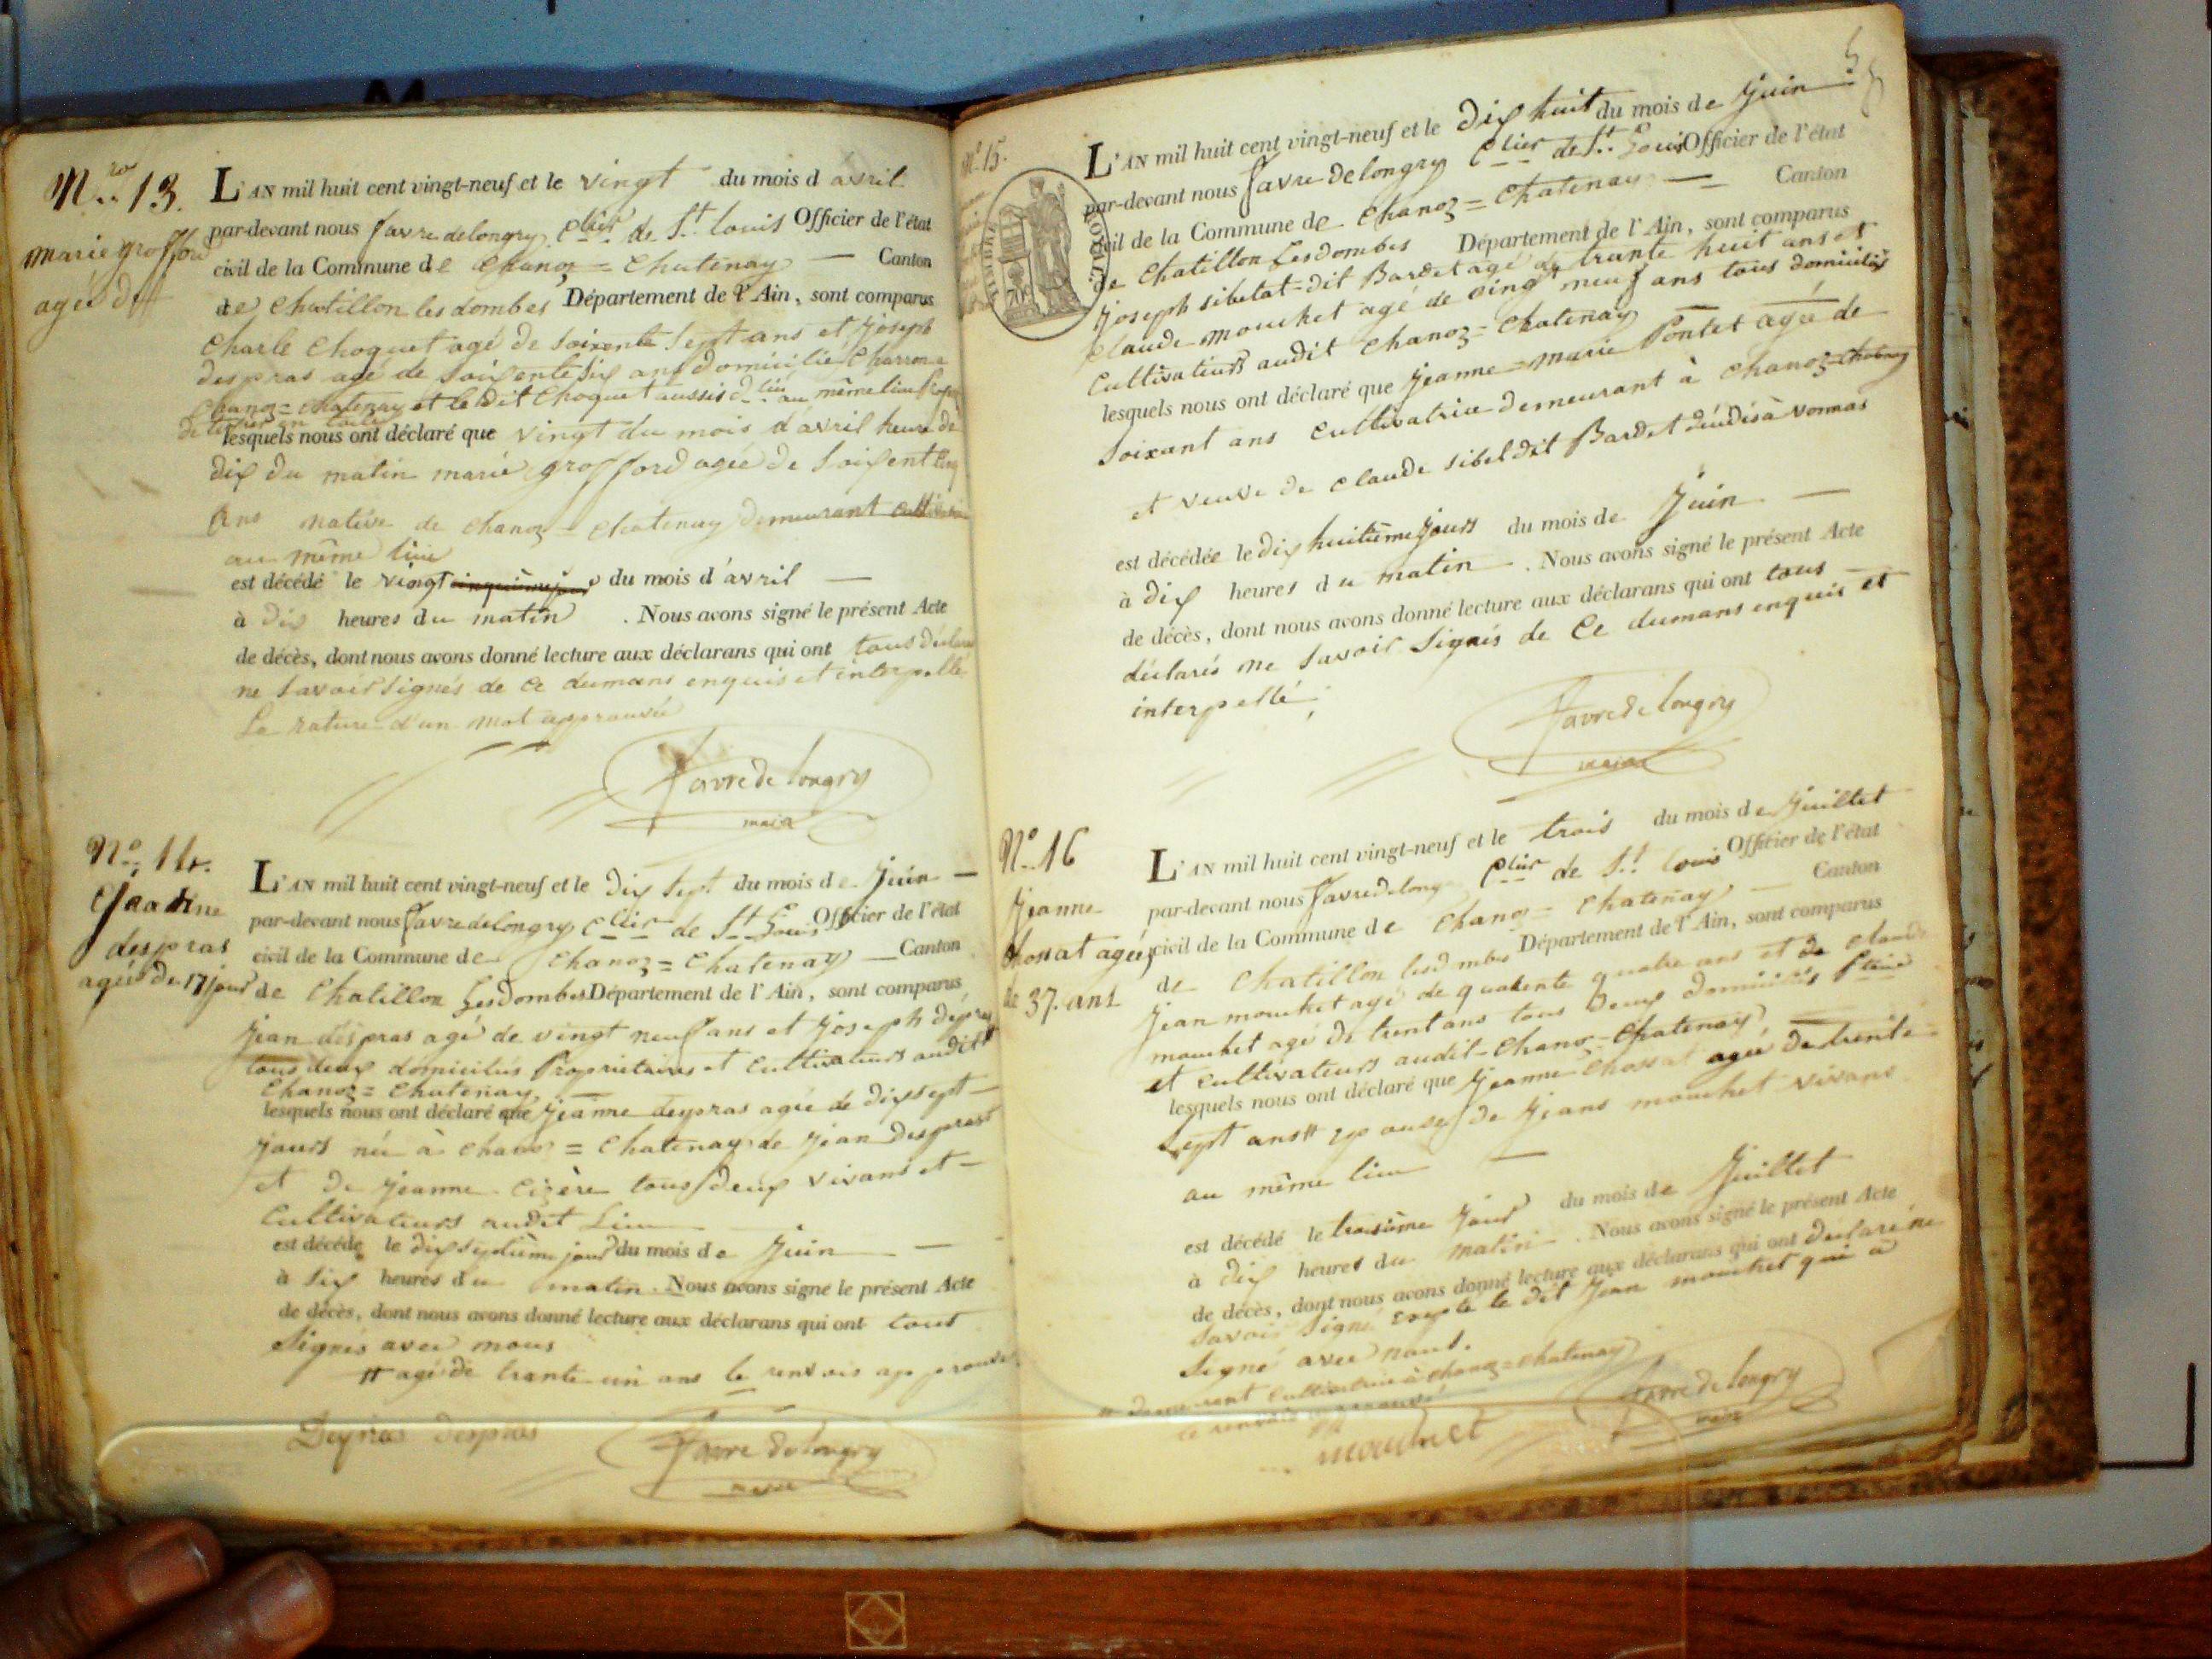 N.ro 13.
marie grofford
agée de
L'AN mil huit cent vingt-neuf et le vingt du mois d avril
par-devant nous favre delongry c.lier de S.t louis Officier de l'état
civil de la Commune de chanoz = chatenay — Canton
de chatillon les dombes Département de l'Ain, sont comparus
charle choquet agé de soixente sept ans et joseph
despras agé de soixente six ans domicilié charron a
chanoz = chatenay et le dit choquet aussis au même lieu
lesquels nous ont déclaré que vingt du mois d'avril heure de
dix du matin marie grofford agée de soixent
ans native de chanoz = chatenay demeurant
au même lieu
est décédé le vingt du mois d'avril —
à dix heures du matin . Nous avons signé le présent Acte
de décès, dont nous avons donné lecture aux déclarans qui ont tous déclaré
ne savoir signés de ce dumans enquis et interpellé
La rature d'un mot approuvée
favre de longry
maire
N.o 14.
Jeanne
despras
agée de 17 jour
L'AN mil huit cent vingt-neuf et le dix sept du mois de juin —
par-devant nous favre delongry c.lier de S.t Louis Officier de l'état
civil de la Commune de chanoz = chatenay — Canton
de chatillon Les dombes Département de l'Ain, sont comparus
jean despras agé de vingt neuf ans et joseph dépras
tous deux domiciliés Proprietaires et cultivateurs audit #
chanoz = chatenay —
lesquels nous ont déclaré que jeanne despras agée de dix sept —
jours née à chanoz = chatenay de jean despras
et de jeanne cizère tous deux vivans et —
cultivateurs audit Lieu
est décédé le dix septième jour du mois de juin —
à six heures du matin . Nous avons signé le présent Acte
de décès, dont nous avons donné lecture aux déclarans qui ont tous
signés avec nous
# agé de trante un ans le renvois approuvé
Depras despras favre de longry
maire
N.o 15.
TIMBRE ROYAL
70c
L'AN mil huit cent vingt-neuf et le dix huit du mois de juin
par-devant nous favre delongry c.lier de S.t Louis Officier de l'état
civil de la Commune de chanoz = chatenay — Canton
de chatillon Les dombes Département de l'Ain, sont comparus
joseph sibetat dit Bardet agé de trante huit ans et
claude mouchet agé de cinq neuf ans tous domiciliés
cultivateurs audit chanoz = chatenay —
lesquels nous ont déclaré que jeanne = marie Pontet agée de
soixant ans cultivatrice demeurant à chanoz = chatenay
et veuve de claude sibel dit Bardet déudés à vonnas
est décédée le dix huitieme jours du mois de juin —
à dix heures du matin . Nous avons signé le présent Acte
de décès, dont nous avons donné lecture aux déclarans qui ont tous
déclarés ne savoir signés de ce dumans enquis et
interpellé
favre de longry
maire
N.o 16
jeanne
chossat agée
de 37. ans
L'AN mil huit cent vingt-neuf et le trois du mois de juillet
par-devant nous favre delong c.lier de S.t louis Officier de l'état
civil de la Commune de chanoz = chatenay — Canton
de chatillon lesdombes Département de l'Ain, sont comparus
jean mouchet agé de quarente quatre ans et de claude
mouchet agé de trent ans tous deux domiciliés
et cultivateurs audit chanoz = chatenay —
lesquels nous ont déclaré que jeanne chossat agée de trente
sept ans # epouse de jeans mouchet vivans
au même lieu —
est décédé le troisième jour du mois de juillet
à dix heures du matin . Nous avons signé le présent Acte
de décès, dont nous avons donné lecture aux déclarans qui ont déclaré ne
savoir signé excepté le dit jean mouchet qui a
signé avec nous.
# demeurant cultivatrice à chanoz = chatenay
le renvois approuvé
mouchet favre de longry
maire